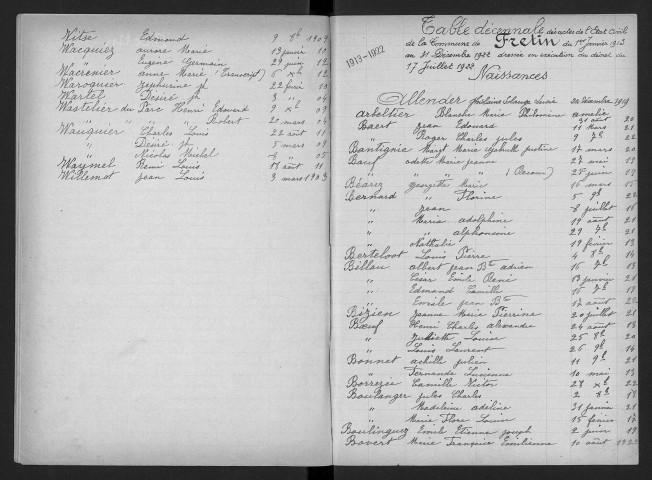 Vitse Edmond 9 8b 1903
Wacquiez Aurore Marie 13 juin 10
" Eugène Germain 29 juin 12
Wacrenier Anne Marie (Transcript) 6 xb 12
Waroquier Zéphirine jh 22 février 10
Wartel Désiré jh 3 " 04
Wastelier du Parc Henri Edouard 9 xb 03
" " " Robert 20 mars 04
Wauquier Charles Louis 22 août 11
" Désiré jh 5 mars 09
" Nicolas Michel " 05
Waymel Remi Louis août 11
Willemot Jean Louis 3 mars 1903
1913-1922
Table décennale des actes de l'Etat Civil
de la Commune de Fretin du 1er janvier 1913
au 31 Décembre 1922 dressée en exécution du décret du
17 Juillet 1922
Naissances
Allender Ghislaine Solange 20 décembre 1919
Arbeltier Blanche Marie Philomène Amélie 31 août 20
Baert Jean Edouard 11 mars 21
" Roger Charles Jules 9 22
Bantignie Marie Gabrielle Justine 17 mars 20
Bauf Odette Marie Jeanne 27 mai 19
" " " " 28 juin 19
Béarez Georgette Marie 16 mars 15
Bernard Florine 5 9b 22
" Jean 8 juillet 16
" Maria Adolphine 19 août 21
" " Alphonsine 29 7b 21
" Nathalie 19 février 13
Berteloot Louis Pierre 4 8b 14
Billau Albert Jean Bte Adrien 16 7b 13
" César Emile René 13 janvier 21
" Edmond Camille 15 7b 19
" Emile Jean Bte 17 août 22
Bizien Jeanne Marie Pierrine 20 juillet 21
Bœuf Henri Charles Alexandre 24 août 13
" Juliette Louise 25 8b 20
" Louis Laurent 26 9b 14
Bonnet Achille Julien 11 9b 21
" Fernande Lucienne 10 mai 13
Borrezée Camille Victor 28 xb 22
Boulanger Jules Charles 2 8b 13
" Madeleine Adeline 31 janvier 21
" Marie Flore Louise 15 février 17
Boulinguez Emile Etienne Joseph 2 juin 19
Bovert Marie Françoise Emilienne 10 août 1922